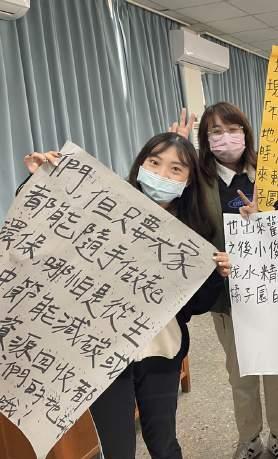 們，但只要大家
都能隨手做起
環保，哪怕是從生
中節能減碳或
資源回收都
們的地
哦！
「不
地
時
來
子園
也出來
之後小俊
找水精
橘子園